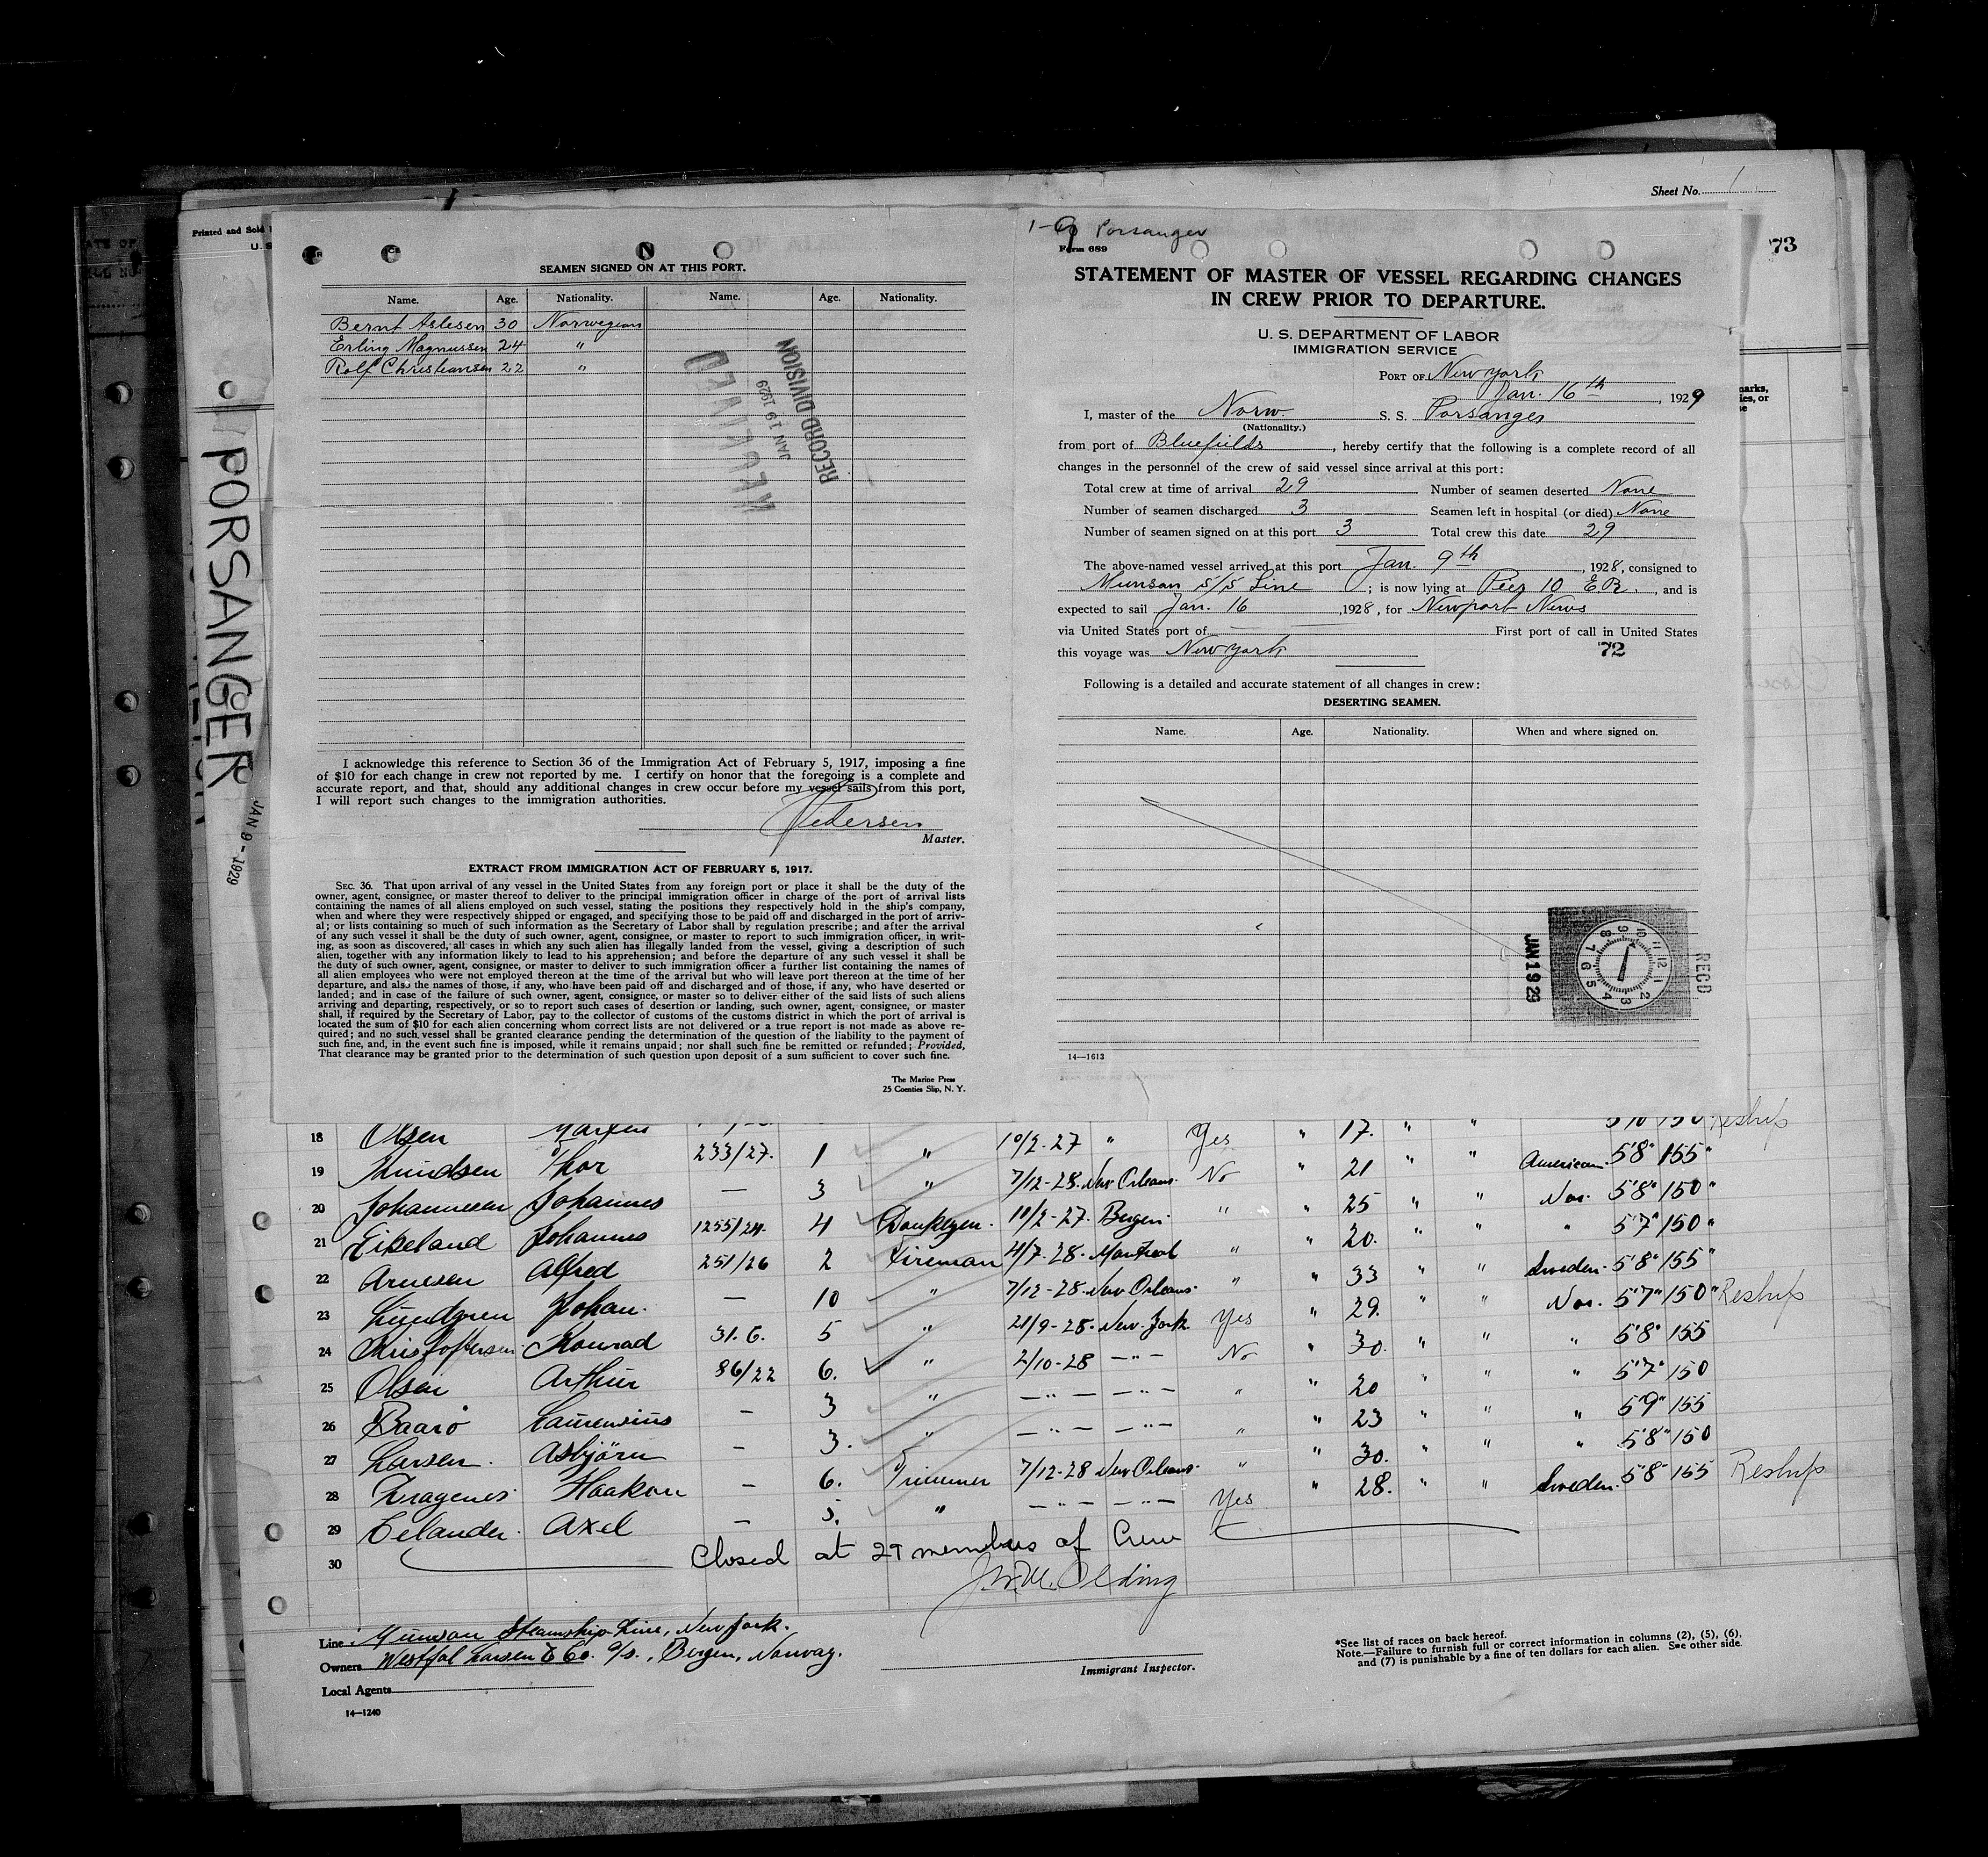 Sheet No. 1
Printed and Sold
U. S.
73
PORSANGER
JAN 9 - 1929
SEAMEN SIGNED ON AT THIS PORT.
Name. Age. Nationality. Name. Age. Nationality.
Bernt Aslesen 30 Norwegian
Erling Magnussen 24 "
Rolf Christiansen 22 "
RECORD DIVISION
JAN 19 1929
I acknowledge this reference to Section 36 of the Immigration Act of February 5, 1917, imposing a fine
of $10 for each change in crew not reported by me. I certify on honor that the foregoing is a complete and
accurate report, and that, should any additional changes in crew occur before my vessel sails from this port,
I will report such changes to the immigration authorities.
Pedersen
Master.
EXTRACT FROM IMMIGRATION ACT OF FEBRUARY 5, 1917.
SEC. 36. That upon arrival of any vessel in the United States from any foreign port or place it shall be the duty of the
owner, agent, consignee, or master thereof to deliver to the principal immigration officer in charge of the port of arrival lists
containing the names of all aliens employed on such vessel, stating the positions they respectively hold in the ship's company,
when and where they were respectively shipped or engaged, and specifying those to be paid off and discharged in the port of arriv-
al; or lists containing so much of such information as the Secretary of Labor shall by regulation prescribe; and after the arrival
of any such vessel it shall be the duty of such owner, agent, consignee, or master to report to such immigration officer, in writ-
ing, as soon as discovered, all cases in which any such alien has illegally landed from the vessel, giving a description of such
alien, together with any information likely to lead to his apprehension; and before the departure of any such vessel it shall be
the duty of such owner, agent, consignee, or master to deliver to such immigration officer a further list containing the names of
all alien employees who were not employed thereon at the time of the arrival but who will leave port thereon at the time of her
departure, and also the names of those, if any, who have been paid off and discharged and of those, if any, who have deserted or
landed; and in case of the failure of such owner, agent, consignee, or master so to deliver either of the said lists of such aliens
arriving and departing, respectively, or so to report such cases of desertion or landing, such owner, agent, consignee, or master
shall, if required by the Secretary of Labor, pay to the collector of customs of the customs district in which the port of arrival is
located the sum of $10 for each alien concerning whom correct lists are not delivered or a true report is not made as above re-
quired; and no such vessel shall be granted clearance pending the determination of the question of the liability to the payment of
such fine, and, in the event such fine is imposed, while it remains unpaid; nor shall such fine be remitted or refunded; Provided,
That clearance may be granted prior to the determination of such question upon deposit of a sum sufficient to cover such fine.
The Marine Press
25 Coenties Slip, N. Y.
Porsanger
Form 689
STATEMENT OF MASTER OF VESSEL REGARDING CHANGES
IN CREW PRIOR TO DEPARTURE.
U. S. DEPARTMENT OF LABOR
IMMIGRATION SERVICE
PORT OF New York
Jan. 16th, 1929
I, master of the Norw. S. S. Porsanger
(Nationality.)
from port of Bluefields, hereby certify that the following is a complete record of all
changes in the personnel of the crew of said vessel since arrival at this port:
Total crew at time of arrival 29 Number of seamen deserted None
Number of seamen discharged 3 Seamen left in hospital (or died) None
Number of seamen signed on at this port 3 Total crew this date 29
The above-named vessel arrived at this port Jan. 9th, 1928, consigned to
Munson S/S Line; is now lying at Pier 10 E.R., and is
expected to sail Jan. 16, 1928, for Newport News
via United States port of — First port of call in United States
this voyage was New York
72
Following is a detailed and accurate statement of all changes in crew:
DESERTING SEAMEN.
Name. Age. Nationality. When and where signed on.
JAN 19 29
REC'D
14—1613
18 Olsen 10/2-27 " Yes " 17. " " 5'10 150 Reship
19 Knudsen Thor 233/27. 1 " 7/12-28. New Orleans. No " 21 " " American. 5'8" 155"
20 Johannesen Johannes — 3 " 10/2-27. Bergen " " 25 " " Nor. 5'8" 150"
21 Eikeland Johannes 1255/24. 4 Donkeyen. 4/7-28. Montreal " " 20. " " " 5'7" 150"
22 Arnesen Alfred 251/26 2 Fireman 7/12-28. New Orleans. " " 33 " " Sweden. 5'8" 155"
23 Lundgren Johan. — 10 " 21/9-28. New York Yes " 29. " " Nor. 5'7" 150" Reship
24 Kristoffersen Konrad 31.6. 5 " 2/10-28 — " — No " 30. " " " 5'8" 155
25 Olsen Arthur 86/22 6. " — " — — " — " 20 " " " 5'7" 150
26 Baarö Laurensius — 3 " — " — — " — " " 23 " " " 5'9" 155
27 Larsen. Asbjörn — 3. " 7/12-28 New Orleans. " " 30. " " " 5'8" 150
28 Haakon — 6. Trimmer — " — — " — Yes " 28. " " Sweden. 5'8" 155 Reship
29 Axel — 5. "
30 Closed at 29 members of Crew
Line Munson Steamship Line, New York.
Owners Westfal Larsen & Co. A/S., Bergen, Norway.
Local Agents
14—1240
Immigrant Inspector.
*See list of races on back hereof.
Note.—Failure to furnish full or correct information in columns (2), (5), (6),
and (7) is punishable by a fine of ten dollars for each alien. See other side.